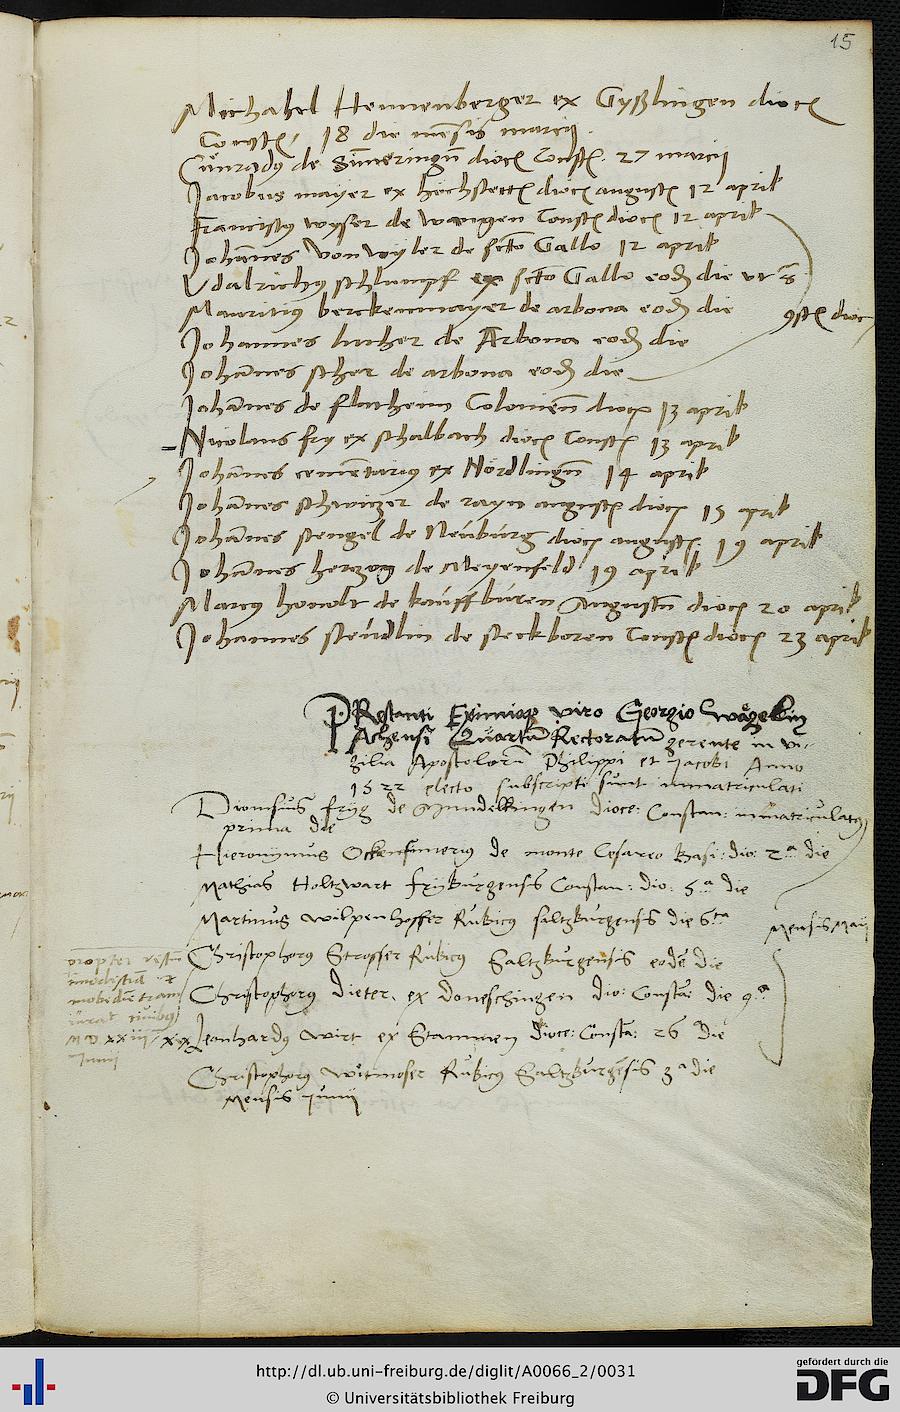 15
Michahel Hennenberger ex Gyßlingen dioc
Const, 18 die mēsis marcij
Cůnradus de Simeringñ dioc Const. 27 marcij
Jacobus mayer ex hochstett dioc august 12 april
Franciscus wyser de wangen Const dioc 12 april
Johānes von wyler de scto Gallo 12 april
Vdalrichus schlumpf ex scto Gallo eod die vt s
Mauritius berckenmayer de arbona eod die
9st dioc
Johannes lucher de Arbona eod die
Johānes scher de arbona eod die
Johānes de flachenn Colonien dioc 13 april
Nicolaus fry ex schalbach dioc Const 13 april
Johānes cementarius ex Nördlingñ 14 april
Johānes schwitzer de rayn august dioc 15 april
Johānes stengel de Neuburg dioc august 19 april
Johānes hertzog de Meyenfeld 19 april
Marcus honolt de kauffburen Augustñ dioc 20 april
Johannes steudlin de steckboren Const dioc 23 april
PRestanti Eximioq viro Georgio Wägelin
Achensi Quartū Rectoratū gerente in vi-
gilia Apostolorū Philippi et Jacobi Anno
1522 electo subscripti sunt inmatriculati
Dionisius fryg de Mundelkingen dioce: Constan: inmatriculatus
prima die
Hieronymus Ockenfunerius de monte Cesareo Basi: dio: 2a die
Mathias Holtzwart fryburgensis Constan: dio: 5a die
Martinus wilpenhoffer Rubicus saltzburgensis die 6ta
Mensis Maij
Christophorus Strosser Rubicus Saltzburgensis eodē die
Christophorus dieter, ex doneschingen dio: Constā: die 9a
propter
MDXXIIII
Junij
Leonhardus wirt ex Stammen dioce: Constā: 26 die
Christophorus witmoser Rubicus Saltzburgēsis 3a die
Mensis Junij
http://dl.ub.uni-freiburg.de/diglit/A0066_2/0031
© Universitätsbibliothek Freiburg
gefördert durch die
DFG